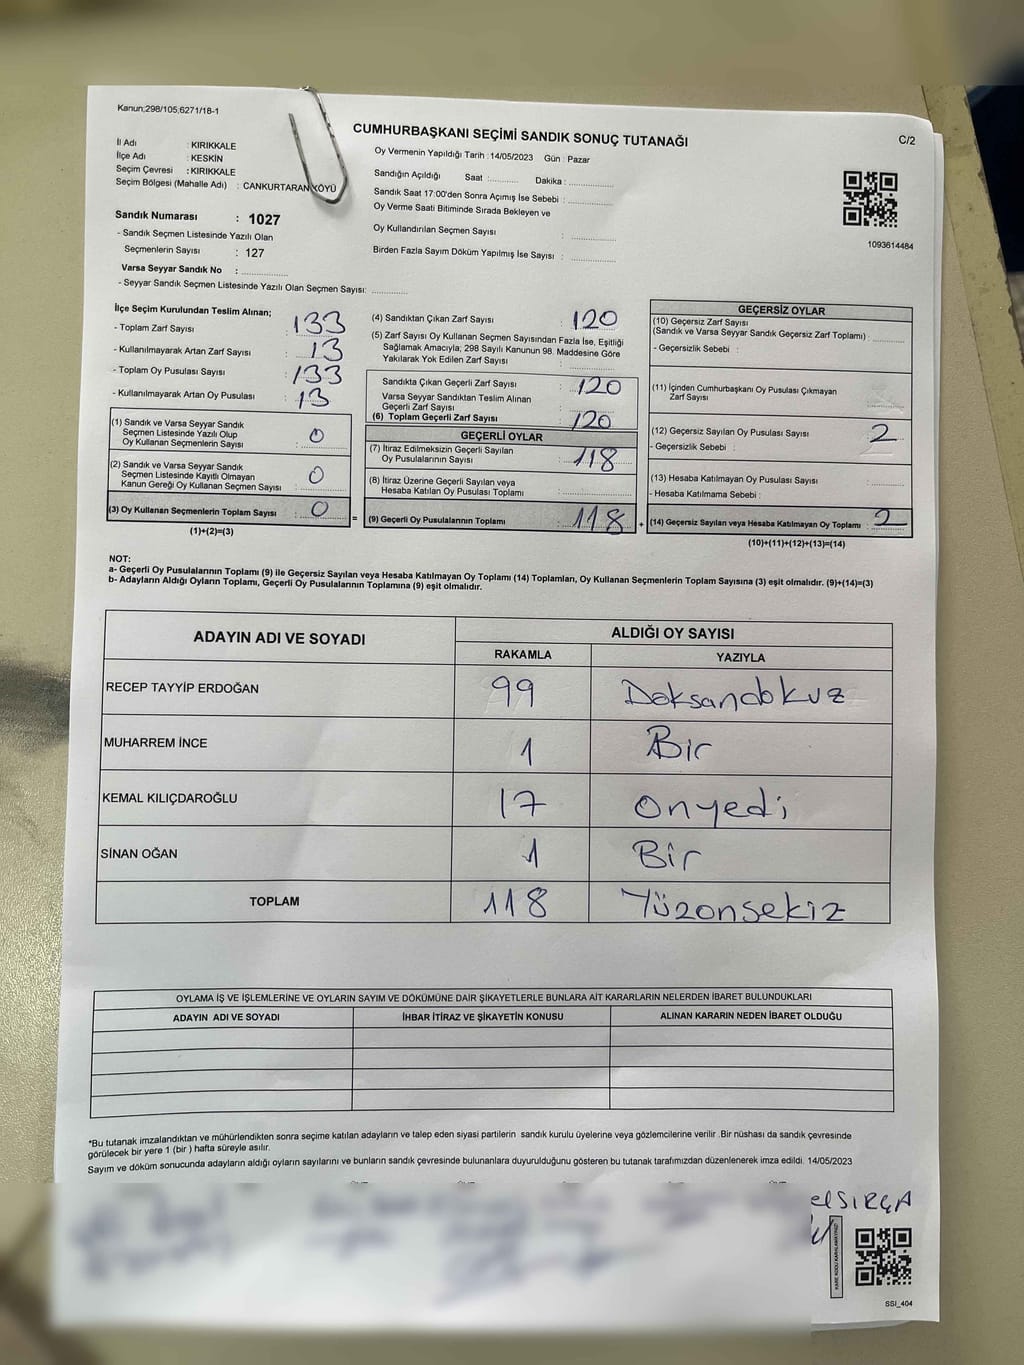 Kanun;298/105;6271/18-1
CUMHURBAŞKANI SEÇİMİ SANDIK SONUÇ TUTANAĞI
C/2
İl Adı : KIRIKKALE
İlçe Adı : KESKİN
Seçim Çevresi : KIRIKKALE
Seçim Bölgesi (Mahalle Adı) : CANKURTARAN KÖYÜ
Sandık Numarası : 1027
- Sandık Seçmen Listesinde Yazılı Olan
Seçmenlerin Sayısı : 127
Varsa Seyyar Sandık No :
- Seyyar Sandık Seçmen Listesinde Yazılı Olan Seçmen Sayısı:
Oy Vermenin Yapıldığı Tarih : 14/05/2023 Gün : Pazar
Sandığın Açıldığı Saat :.......... Dakika :
Sandık Saat 17:00'den Sonra Açımış İse Sebebi :
Oy Verme Saati Bitiminde Sırada Bekleyen ve
Oy Kullandırılan Seçmen Sayısı :
Birden Fazla Sayım Döküm Yapılmış İse Sayısı :
1093614484
İlçe Seçim Kurulundan Teslim Alınan;
- Toplam Zarf Sayısı : 133
- Kullanılmayarak Artan Zarf Sayısı : 13
- Toplam Oy Pusulası Sayısı : 133
- Kullanılmayarak Artan Oy Pusulası : 13
(1) Sandık ve Varsa Seyyar Sandık
Seçmen Listesinde Yazılı Olup
Oy Kullanan Seçmenlerin Sayısı : 0
(2) Sandık ve Varsa Seyyar Sandık
Seçmen Listesinde Kayıtlı Olmayan
Kanun Gereği Oy Kullanan Seçmen Sayısı : 0
(3) Oy Kullanan Seçmenlerin Toplam Sayısı : 0
(1)+(2)=(3)
(4) Sandıktan Çıkan Zarf Sayısı : 120
(5) Zarf Sayısı Oy Kullanan Seçmen Sayısından Fazla İse, Eşitliği
Sağlamak Amacıyla; 298 Sayılı Kanunun 98. Maddesine Göre
Yakılarak Yok Edilen Zarf Sayısı :
Sandıkta Çıkan Geçerli Zarf Sayısı : 120
Varsa Seyyar Sandıktan Teslim Alınan
Geçerli Zarf Sayısı :
(6) Toplam Geçerli Zarf Sayısı : 120
GEÇERLİ OYLAR
(7) İtiraz Edilmeksizin Geçerli Sayılan
Oy Pusulalarının Sayısı : 118
(8) İtiraz Üzerine Geçerli Sayılan veya
Hesaba Katılan Oy Pusulası Toplamı :
= (9) Geçerli Oy Pusulalarının Toplamı : 118 +
GEÇERSİZ OYLAR
(10) Geçersiz Zarf Sayısı
(Sandık ve Varsa Seyyar Sandık Geçersiz Zarf Toplamı) :
- Geçersizlik Sebebi :
(11) İçinden Cumhurbaşkanı Oy Pusulası Çıkmayan
Zarf Sayısı :
(12) Geçersiz Sayılan Oy Pusulası Sayısı : 2
- Geçersizlik Sebebi :
(13) Hesaba Katılmayan Oy Pusulası Sayısı :
- Hesaba Katılmama Sebebi :
(14) Geçersiz Sayılan veya Hesaba Katılmayan Oy Toplamı : 2
(10)+(11)+(12)+(13)=(14)
NOT:
a- Geçerli Oy Pusulalarının Toplamı (9) ile Geçersiz Sayılan veya Hesaba Katılmayan Oy Toplamı (14) Toplamları, Oy Kullanan Seçmenlerin Toplam Sayısına (3) eşit olmalıdır. (9)+(14)=(3)
b- Adayların Aldığı Oyların Toplamı, Geçerli Oy Pusulalarının Toplamına (9) eşit olmalıdır.
ADAYIN ADI VE SOYADI
ALDIĞI OY SAYISI
RAKAMLA YAZIYLA
RECEP TAYYİP ERDOĞAN 99 Doksandokuz
MUHARREM İNCE 1 Bir
KEMAL KILIÇDAROĞLU 17 onyedi
SİNAN OĞAN 1 Bir
TOPLAM 118 Yüzonsekiz
OYLAMA İŞ VE İŞLEMLERİNE VE OYLARIN SAYIM VE DÖKÜMÜNE DAİR ŞİKAYETLERLE BUNLARA AİT KARARLARIN NELERDEN İBARET BULUNDUKLARI
ADAYIN ADI VE SOYADI İHBAR İTİRAZ VE ŞİKAYETİN KONUSU ALINAN KARARIN NEDEN İBARET OLDUĞU
*Bu tutanak imzalandıktan ve mühürlendikten sonra seçime katılan adayların ve talep eden siyasi partilerin sandık kurulu üyelerine veya gözlemcilerine verilir .Bir nüshası da sandık çevresinde
görülecek bir yere 1 (bir ) hafta süreyle asılır.
Sayım ve döküm sonucunda adayların aldığı oyların sayılarını ve bunların sandık çevresinde bulunanlara duyurulduğunu gösteren bu tutanak tarafımızdan düzenlenerek imza edildi. 14/05/2023
el SIRÇA
SSI_404